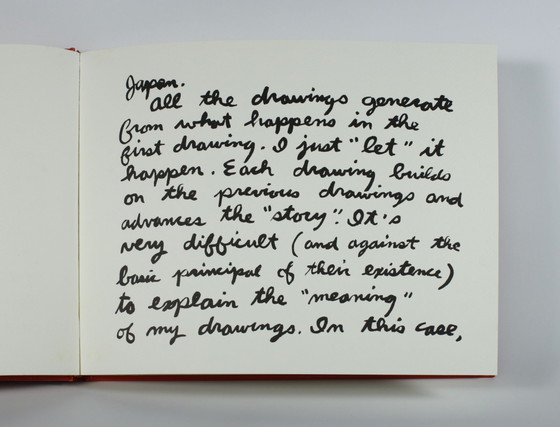 Japan.
All the drawings generate
from what happens in the
first drawing. I just "let" it
happen. Each drawing builds
on the previous drawings and
advances the "story". It's
very difficult (and against the
basic principal of their existence)
to explain the "meaning"
of my drawings. In this case,